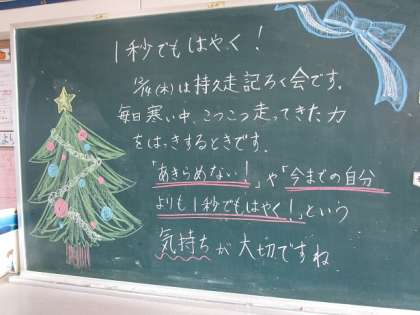 1秒でもはやく!
12/4(木)は持久走記ろく会です。
毎日寒い中、こつこつ走ってきた力
をはっきするときです。
「あきらめない!」や「今までの自分
よりも1秒でもはやく!」という
気持ちが大切ですね